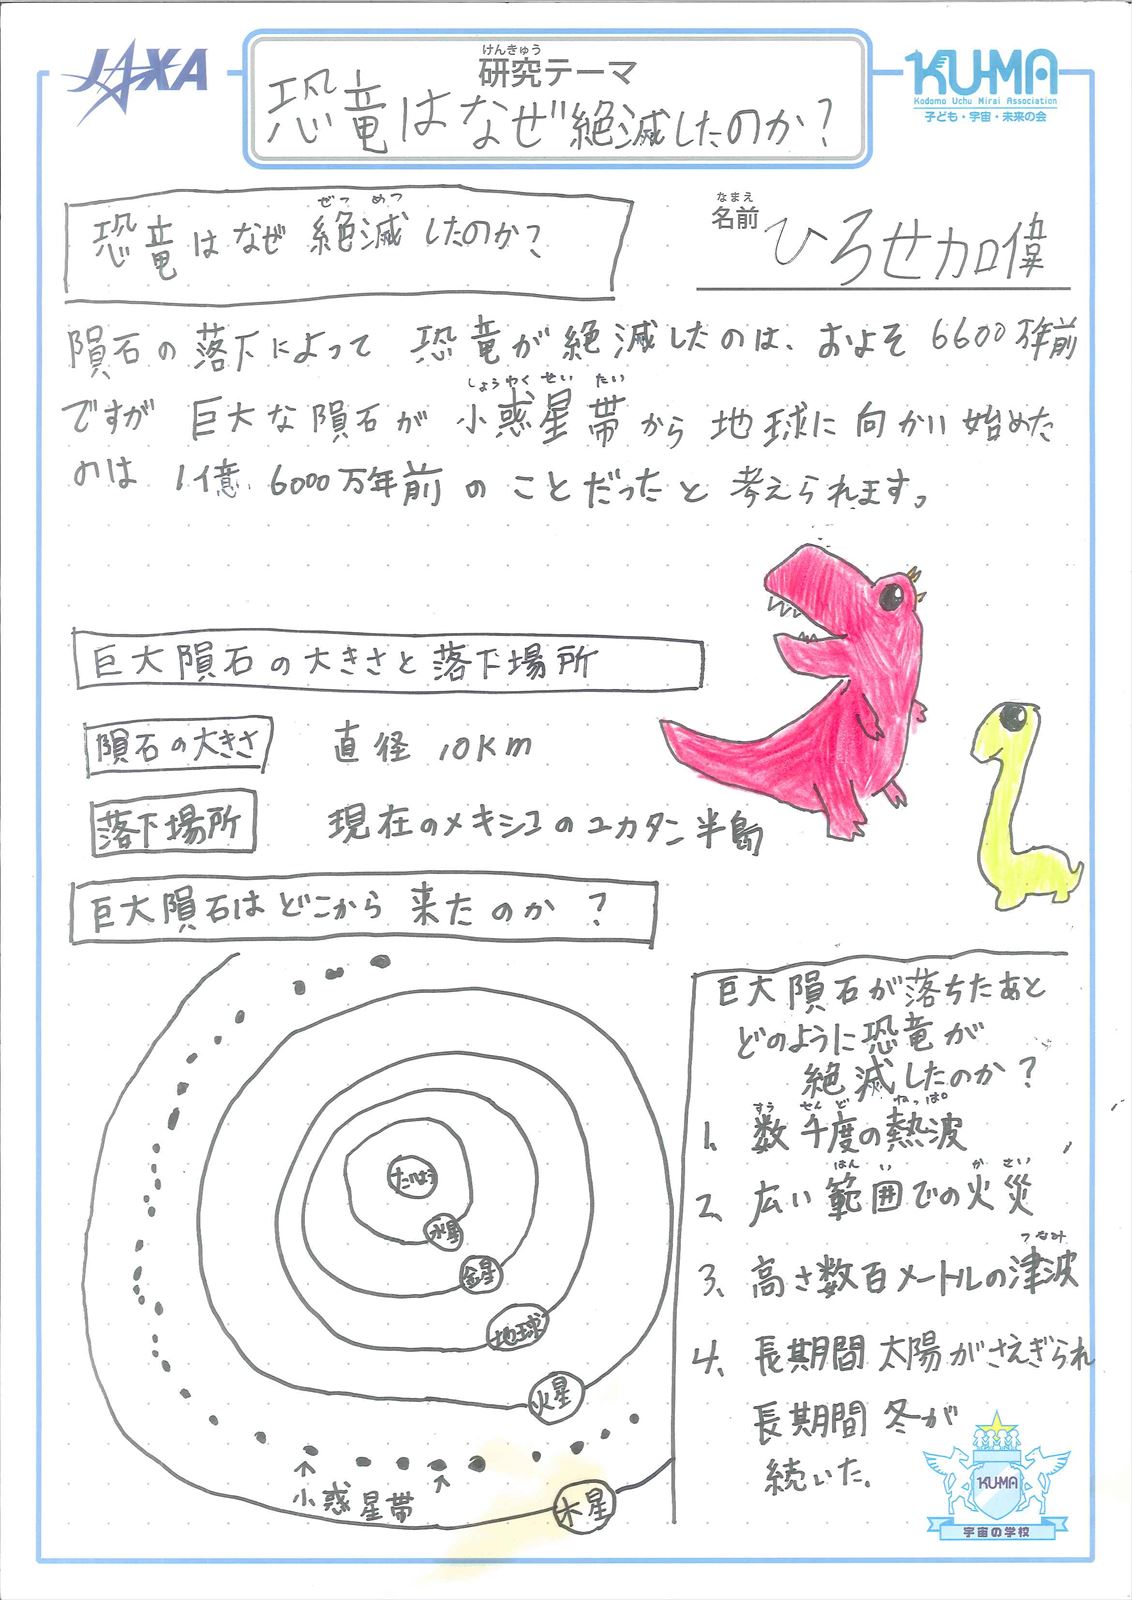 JAXA
けんきゅう
研究テーマ
恐竜はなぜ絶滅したのか?
KU-MA
Kodomo Uchu Mirai Association
子ども・宇宙・未来の会
ぜつめつ
恐竜はなぜ絶滅したのか?
なまえ
名前
ひろせカロ偉
隕石の落下によって 恐竜が絶滅したのは、およそ6600万年前
しょうわくせいたい
ですが 巨大な隕石が 小惑星帯から 地球に向かい始めた
のは 1億6000万年前のことだったと考えられます。
巨大隕石の大きさと落下場所
隕石の大きさ 直径 10km
落下場所 現在のメキシコのユカタン半島
巨大隕石はどこから来たのか?
たいよう
水星
金星
地球
火星
小惑星帯
木星
巨大隕石が落ちたあと
どのように恐竜が
絶滅したのか?
すうせんど ねっぱ
1、数千度の熱波
はんい かさい
2、広い範囲での火災
つなみ
3、高さ数百メートルの津波
4、長期間太陽がさえぎられ
長期間冬が
続いた。
KU-MA
宇宙の学校